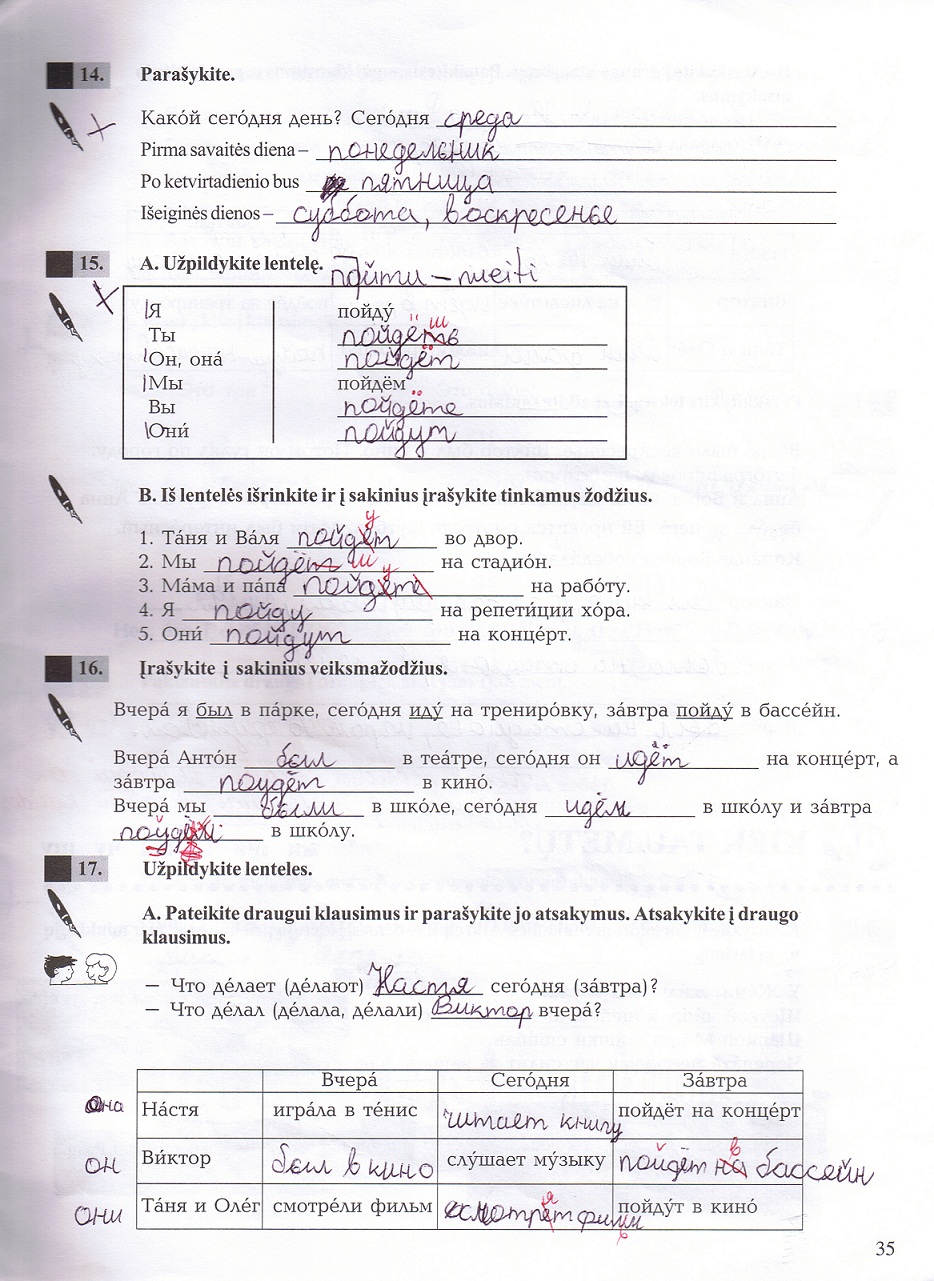 14. Parašykite.
Како́й сего́дня день? Сего́дня среда
Pirma savaitės diena – понедельник
Po ketvirtadienio bus пятница
Išeiginės dienos – суббота, воскресенье
15. A. Užpildykite lentelę. пойти – nueiti
Я пойду́
Ты пойдёшь
Он, она́ пойдёт
Мы пойдём
Вы пойдёте
Они́ пойдут
B. Iš lentelės išrinkite ir į sakinius įrašykite tinkamus žodžius.
1. Та́ня и Ва́ля пойдут во двор.
2. Мы на стадио́н.
3. Ма́ма и па́па на рабо́ту.
4. Я пойду на репети́ции хо́ра.
5. Они́ пойдут на конце́рт.
16. Įrašykite į sakinius veiksmažodžius.
Вчера́ я был в па́рке, сего́дня иду́ на трениро́вку, за́втра пойду́ в бассе́йн.
Вчера́ Анто́н был в теа́тре, сего́дня он идёт на конце́рт, а
за́втра пойдёт в кино́.
Вчера́ мы были в шко́ле, сего́дня идём в шко́лу и за́втра
в шко́лу.
17. Užpildykite lenteles.
A. Pateikite draugui klausimus ir parašykite jo atsakymus. Atsakykite į draugo
klausimus.
— Что де́лает (де́лают) Настя сего́дня (за́втра)?
— Что де́лал (де́лала, де́лали) Виктор вчера́?
Вчера́ Сего́дня За́втра
Она На́стя игра́ла в те́нис читает книгу пойдёт на конце́рт
он Ви́ктор был в кино слу́шает му́зыку пойдёт на в бассейн
они Та́ня и Оле́г смотре́ли фильм пойду́т в кино́
35